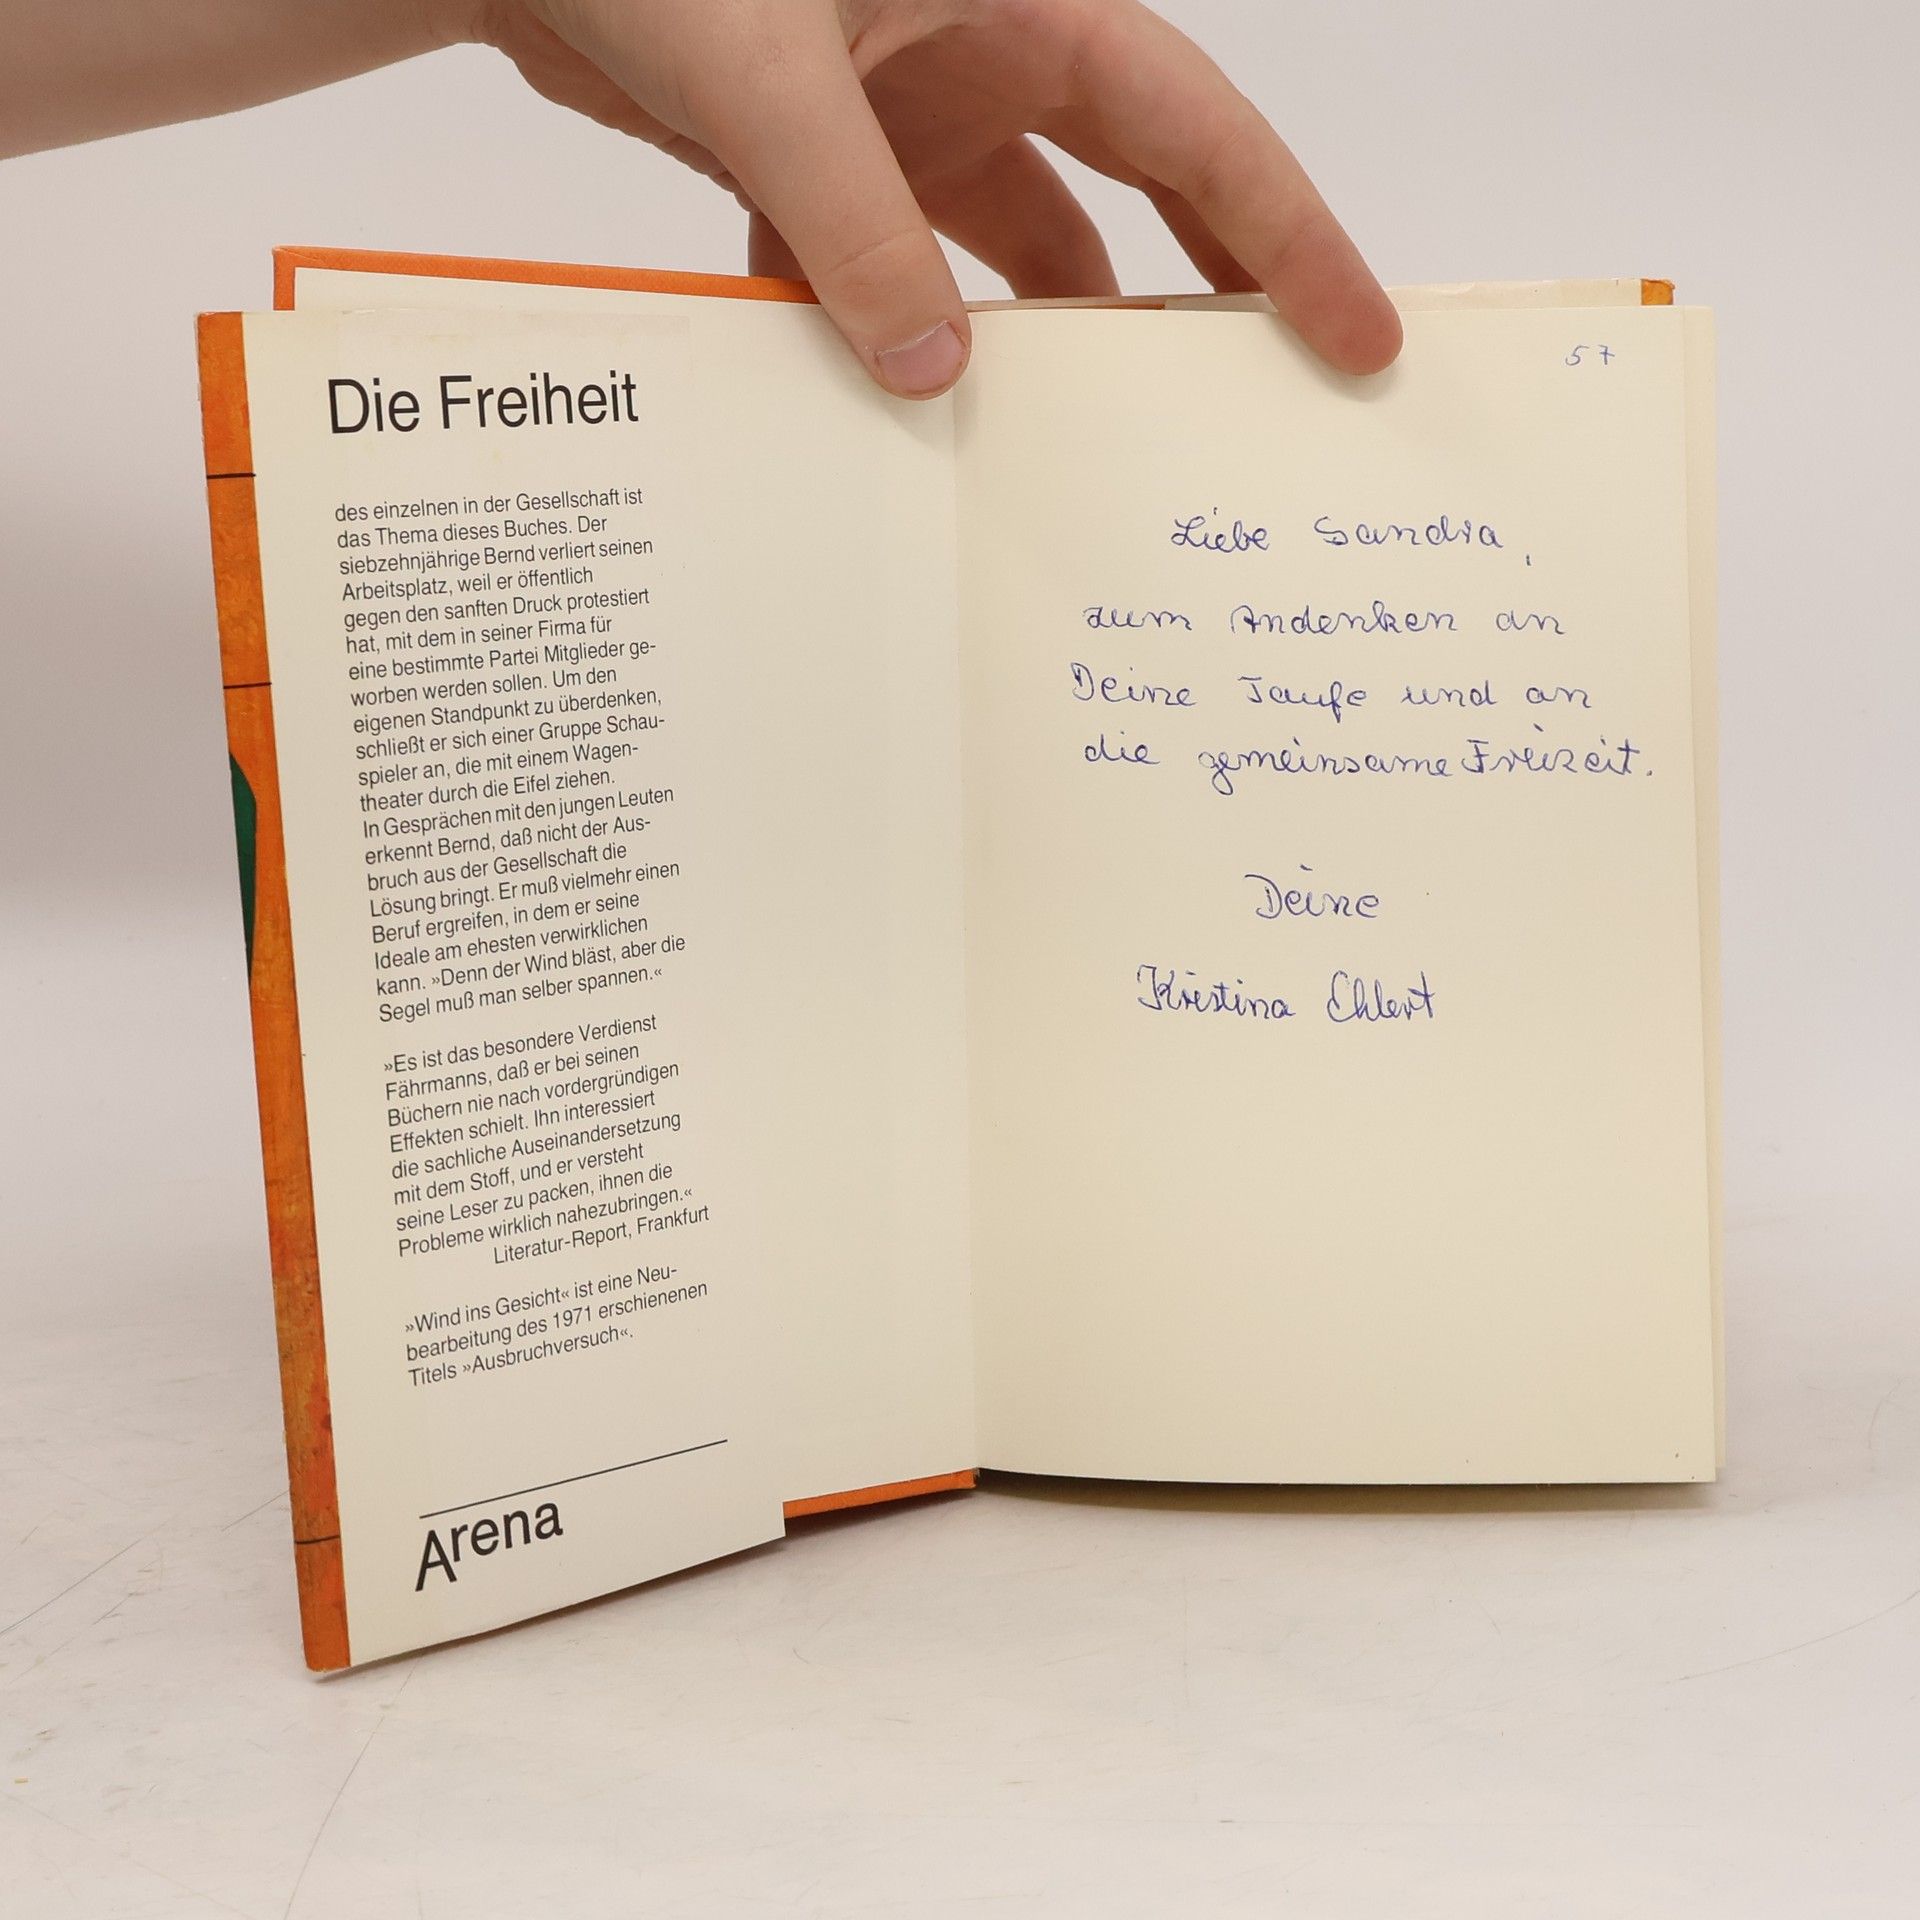 Die Freiheit
des einzelnen in der Gesellschaft ist
das Thema dieses Buches. Der
siebzehnjährige Bernd verliert seinen
Arbeitsplatz, weil er öffentlich
gegen den sanften Druck protestiert
hat, mit dem in seiner Firma für
eine bestimmte Partei Mitglieder ge-
worben werden sollen. Um den
eigenen Standpunkt zu überdenken,
schließt er sich einer Gruppe Schau-
spieler an, die mit einem Wagen-
theater durch die Eifel ziehen.
In Gesprächen mit den jungen Leuten
erkennt Bernd, daß nicht der Aus-
bruch aus der Gesellschaft die
Lösung bringt. Er muß vielmehr einen
Beruf ergreifen, in dem er seine
Ideale am ehesten verwirklichen
kann. »Denn der Wind bläst, aber die
Segel muß man selber spannen.«
»Es ist das besondere Verdienst
Fährmanns, daß er bei seinen
Büchern nie nach vordergründigen
Effekten schielt. Ihn interessiert
die sachliche Auseinandersetzung
mit dem Stoff, und er versteht
seine Leser zu packen, ihnen die
Probleme wirklich nahezubringen.«
Literatur-Report, Frankfurt
»Wind ins Gesicht« ist eine Neu-
bearbeitung des 1971 erschienenen
Titels »Ausbruchversuch«.
Arena
57
Liebe Sandra,
zum Andenken an
Deine Taufe und an
die gemeinsame Freizeit.
Deine
Kristina Ehlert